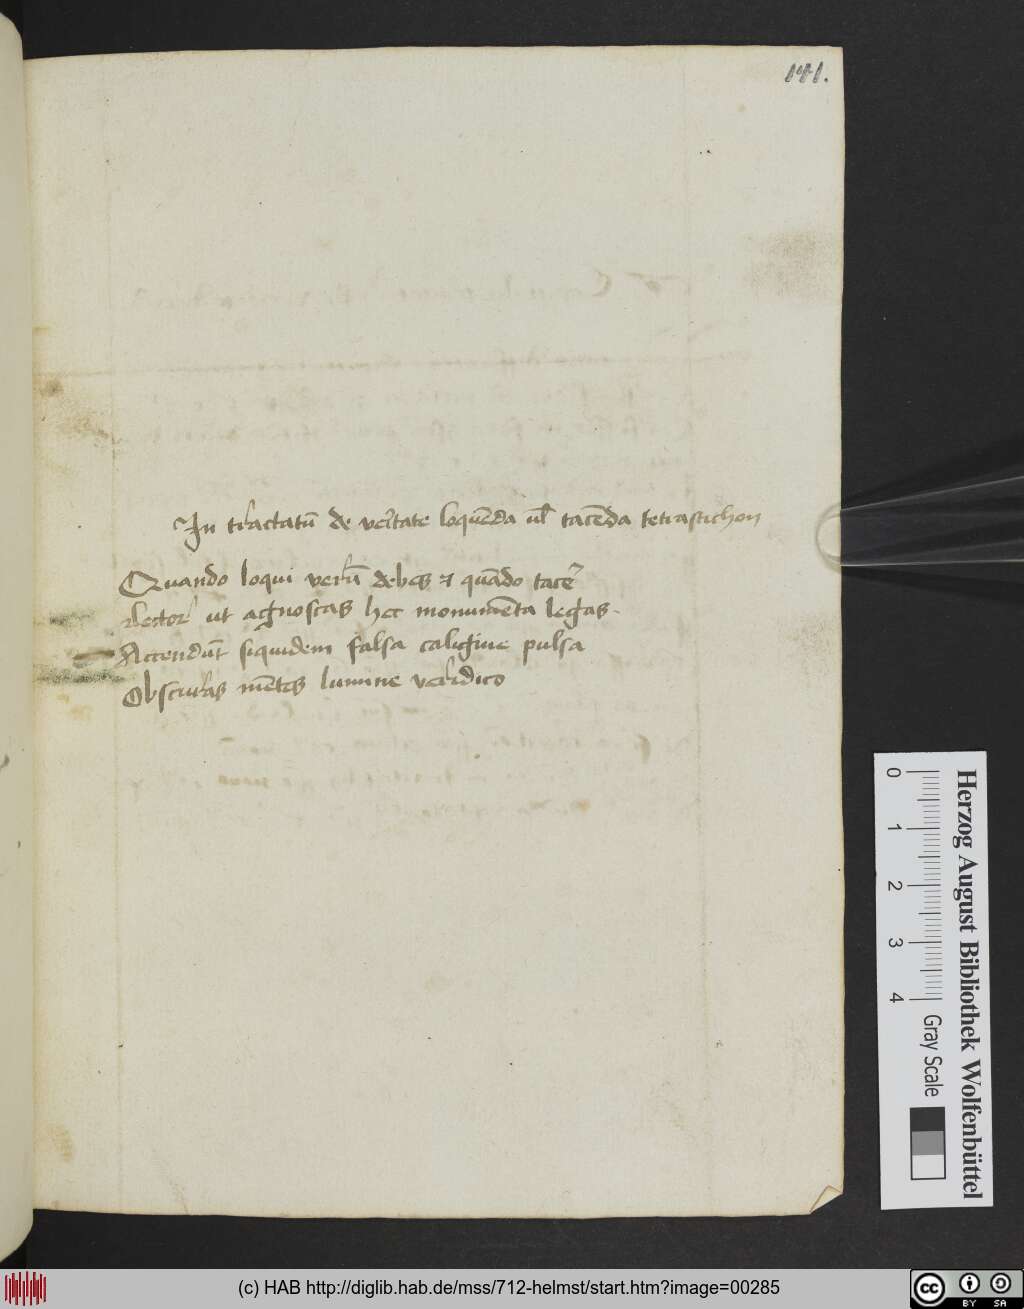 141.
In tractatū de veritate loquēda ul̄ tacēda tetrastichon
Quando loqui verū debes ⁊ quādo tacēr
Lector ut agnoscas hec monumēta legas.
Accendūt siquidem falsa caligine pulsa
Obscuras mētes lumine veridico
0 1 2 3 4
Gray Scale
Herzog August Bibliothek Wolfenbüttel
(c) HAB http://diglib.hab.de/mss/712-helmst/start.htm?image=00285
cc BY SA